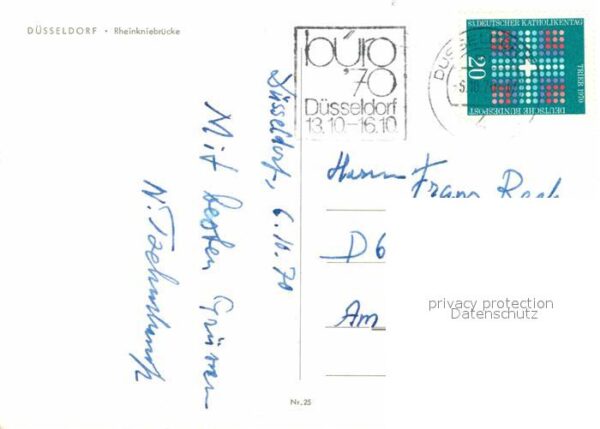 DÜSSELDORF • Rheinkniebrücke
büro
'70
Düsseldorf
13.10.–16.10.
83. DEUTSCHER KATHOLIKENTAG
TRIER 1970
20
DEUTSCHE BUNDESPOST
Düsseldorf, 6.10.70
Mit besten Grüssen
Herrn Franz
D 6
Am
privacy protection
Datenschutz
Nr. 25